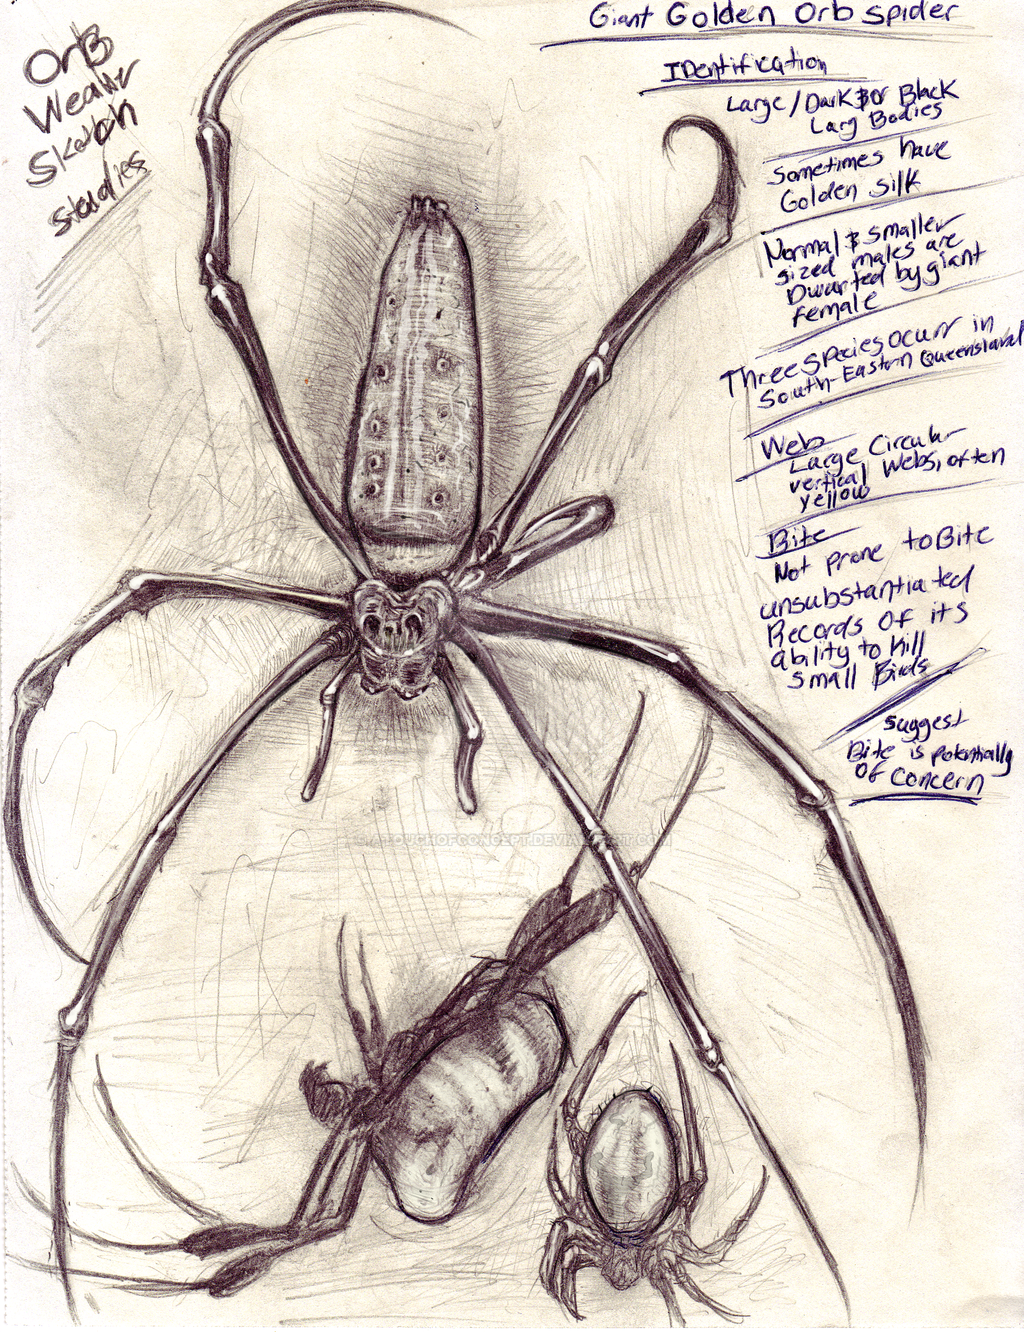 Orb
Weaver
Sketch
Studies
Giant Golden Orb spider
Identification
Large / Dark $ or Black
Larg Bodies
Sometimes have
Golden silk
Normal & smaller
sized males are
Dwarted by giant
female
Three species occurr in
South-Eastern Queensland
Webs
Large Circular
vertical Webs, often
yellow
Bite
Not Prone to Bite
unsubstantiated
Records of its
ability to kill
small Birds
Suggest
Bite is potentially
of concern
© ATOUCHOFCONCEPT.DEVIANTART.COM